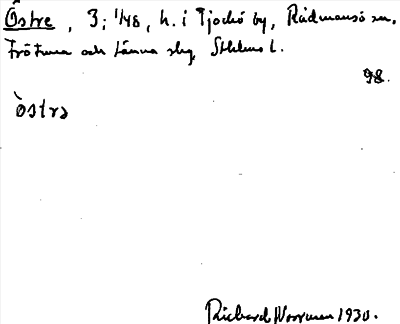 Östre, 3; 1/48, h. i Tjockö by, Rådmansö sn,
Frötuna och Länna slg, Sthlms l.
98.
òstrə
Richard Norrman 1930.